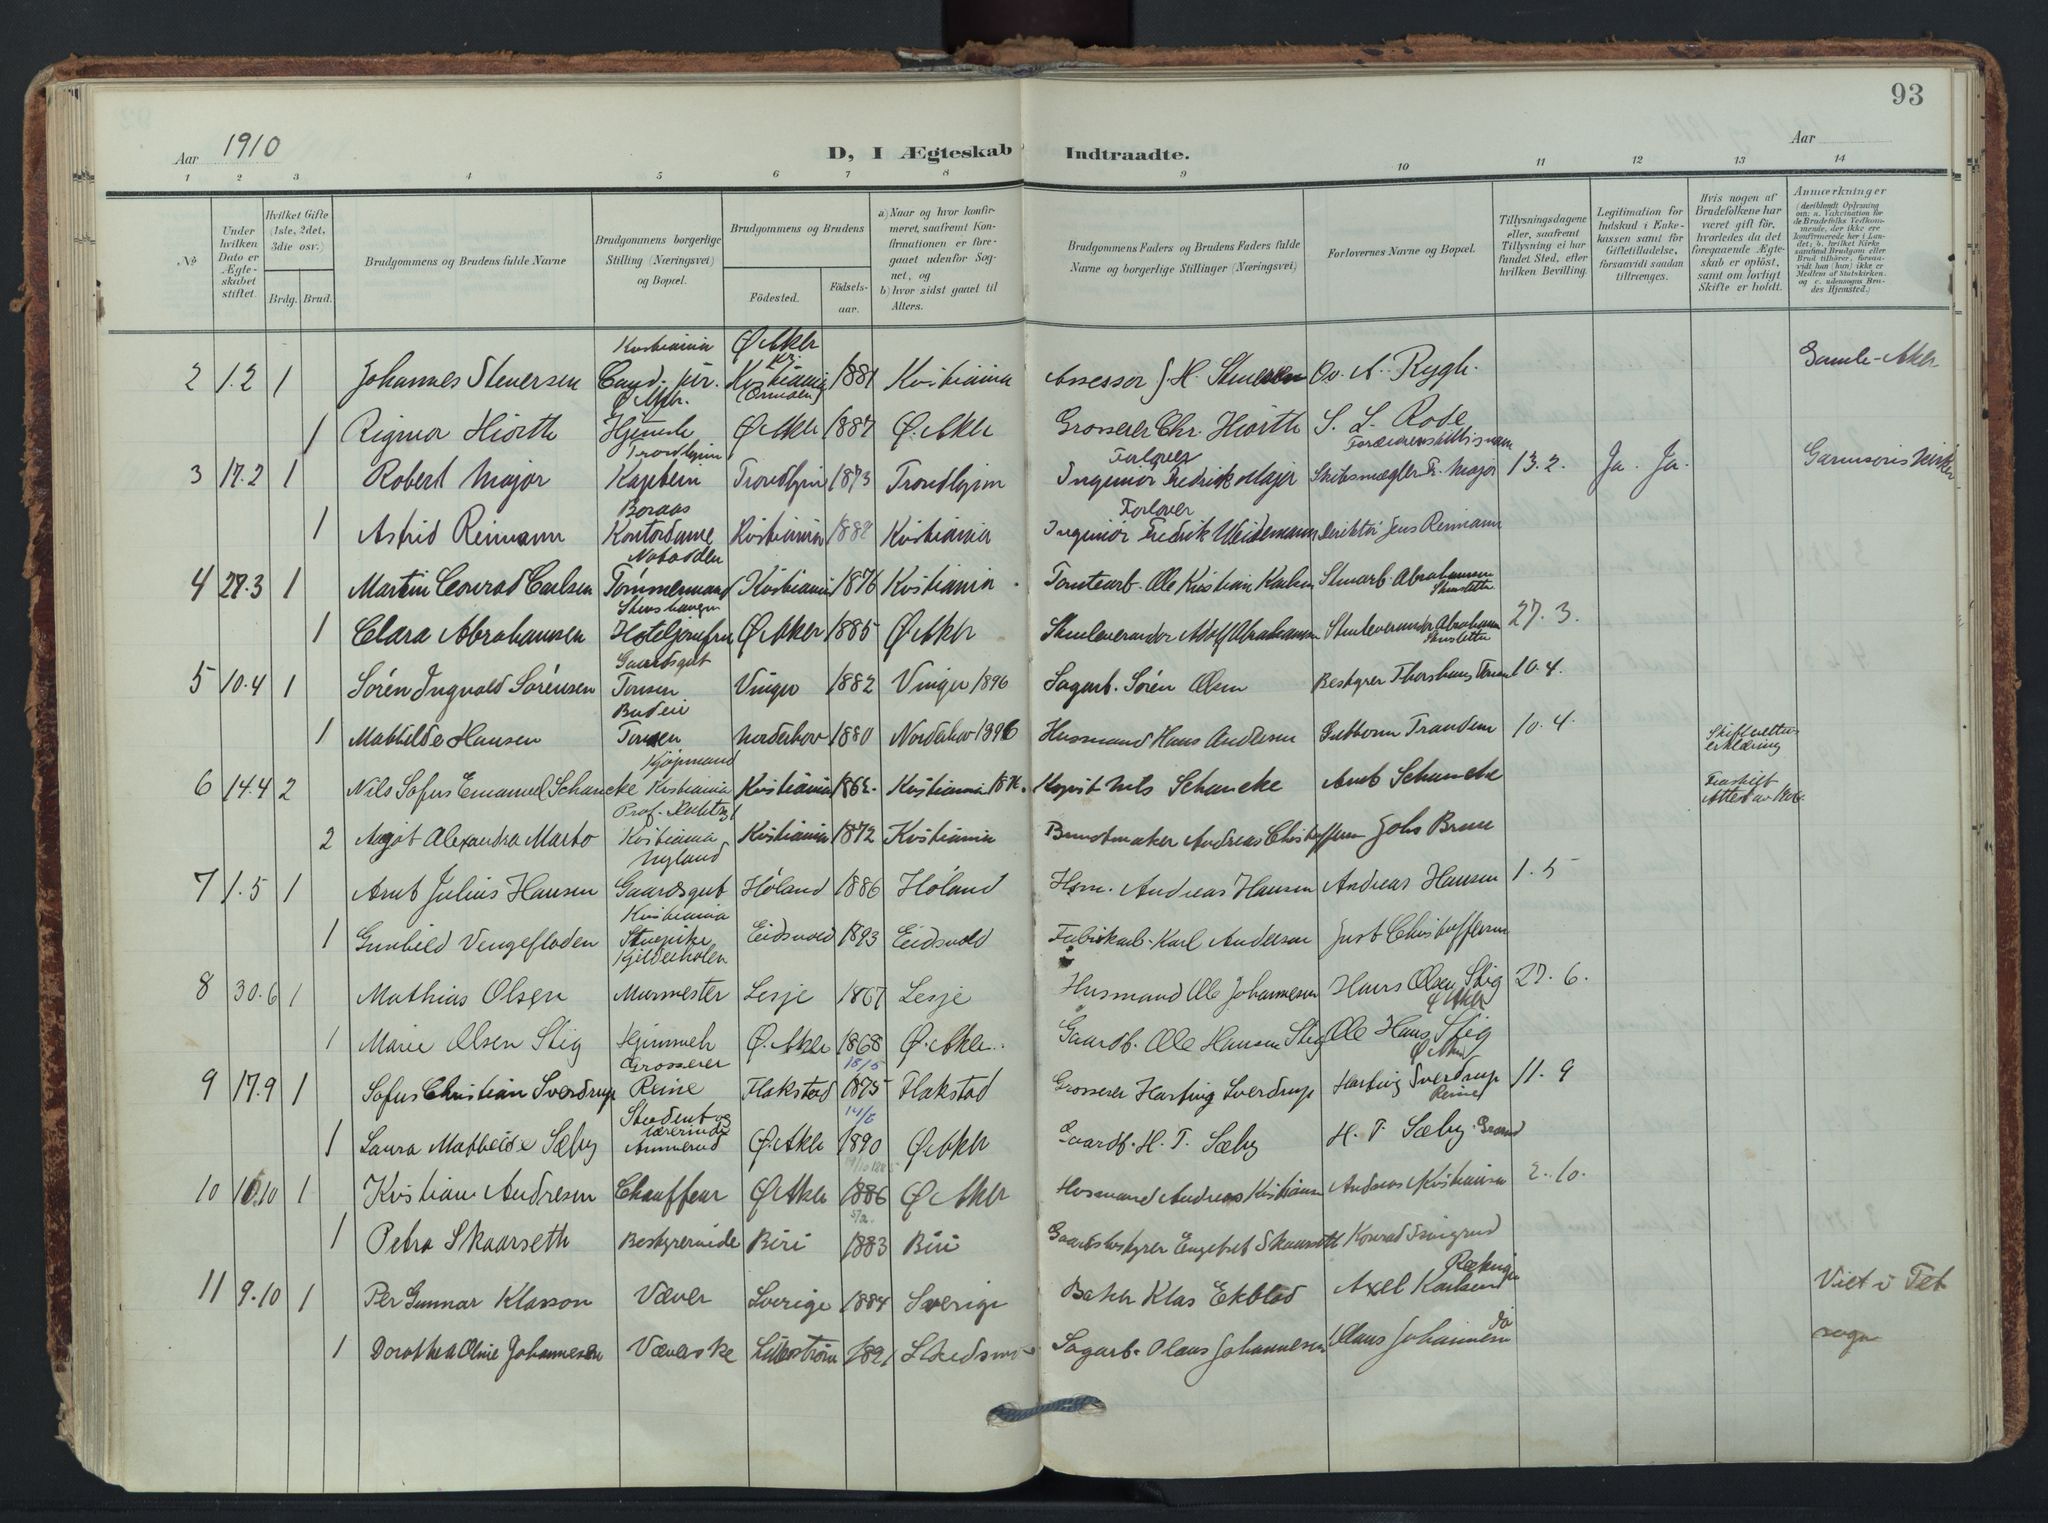 93
Aar 1910
D, I Ægteskab Indtraadte.
Aar
1 2 3 4 5 6 7 8 9 10 11 12 13 14
No
Under hvilken Dato er Ægteskabet stiftet.
Hvilket Gifte (1ste, 2det, 3die osv.)
Brdg. Brud.
Brudgommens og Brudens fulde Navne
Brudgommens borgerlige Stilling (Næringsvei) og Bopæl.
Brudgommens og Brudens
Fødested. Fødselsaar.
a) Naar og hvor konfirmeret, saafremt Konfirmationen er foregaaet udenfor Sognet, og b) hvor sidst gaaet til Alters.
Brudgommens Faders og Brudens Faders fulde Navne og borgerlige Stillinger (Næringsvei)
Forlovernes Navne og Bopæl.
Tillysningsdagene eller, saafremt Tillysning ei har fundet Sted, efter hvilken Bevilling.
Legitimation for Indskud i Enkekassen samt for Giftetilladelse, forsaavidt saadan tiltrænges.
Hvis nogen af Brudefolkene har været gift før, hvorledes da det foregaaende Ægteskab er opløst, samt om lovligt Skifte er holdt.
Anmærkninger (deriblandt Oplysning om: a. Vakcination for de Brudefolks Vedkommende, der ikke ere konfirmerede her i Landet; b. hvilket Kirkesamfund Brudgom eller Brud tilhører, forsaavidt han (hun) ikke er Medlem af Statskirken, og c. udensogns Brudes Hjemsted.)
Kristiania Ø. Aker
2 1.2 1 Johannes Steversen Cand. jur. Kristiania 1881 Kristiania Assessor J. H. Ov. A. Rygh. Gamle-Aker
Ø. Aker.
1 Rigmor Hiorth Hjemme Ø. Aker 1887 Ø. Aker Grosserer Chr. Hiorth S. L. Rode
Trondhjem Forlover
3 17.2 1 Robert Major Kaptein Trondhjem 1873 Trondhjem Ingeniør Fredrik Major Skibsmægler Fr. Major 13.2. Ja. Ja. Garnisons Kirken
Boraas Forlover
1 Astrid Reimann Kontordame Kristiania 1882 Kristiania Ingeniør Fredrik Weidemann Direktør Jens Reimann
Notodden
4 28.3 1 Martin Conrad Carlsen Tømmermand Kristiania 1876 Kristiania Tomtearb. Ole Kristian Karlsen Stenarb. Abrahamsen
Stensletta
1 Clara Abrahamsen Hoteljomfru Ø. Aker 1885 Ø. Aker Stenleverandør Adolf Abrahamsen Stenleverandør Abrahamsen 27.3.
Stensletta
Gaardsgut
5 10.4 1 Søren Ingvald Sørensen Tonsen Vinger 1882 Vinger 1896 Sagarb. Søren Olsen Bestyrer 10.4.
Budeie
1 Mathilde Hansen Tonsen Norderhov 1880 Norderhov 1896 Husmand Hans Andersen Guttorm Trandem 10.4. Skifterettens erklæring
Kjøpmand
6 14.4 2 Nils Sofus Emanuel Schancke Kristiania Kristiania 1862 Kristiania Kopist Nils Schancke Arnt Schancke Fraskilt
2 Aagot Alexandra Marto Kristiania Kristiania 1872 Kristiania Buntmaker Andreas Christoffersen Johs Bruun
Nyland
7 1.5 1 Arnt Julius Hansen Gaardsgut Høland 1886 Høland Hsm. Andreas Hansen Andreas Hansen 1.5
Kristiania
1 Gunhild Vengefloden Stuepike Eidsvold 1893 Eidsvold Fabrikarb. Karl Andersen Just Christoffersen
8 30.6 1 Mathias Olsen Murmester Lesje 1867 Lesje Husmand Ole Johannesen Hans Olsen Stig 27.6.
Ø Aker
1 Marie Olsen Stig Hjemmeh Ø. Aker 1868 Ø. Aker. Gaardb. Ole Hansen Stig Ole Hans Stig
Ø Aker
Grosserer 18/5
9 17.9 1 Sofus Christian Sverdrup Reine Flakstad 1875 Flakstad Grosserer Hartvig Sverdrup Hartvig Sverdrup 11.9
Reine
Student og lærerinde
1 Laura Mathilde Sæby Ammerud Ø. Aker 1890 Ø Aker Gaardb. H. T. Sæby H. T Sæby.
10 10.10 1 Kristian Andresen Chauffeur Ø. Aker 1886 Ø Aker Husmand Andreas Kristiansen Andreas Kristiansen 2.10.
1 Petra Skaarseth Bestyrerinde Biri 1883 Biri Gaardsbestyrer Engebret Skaarseth Konrad
Rælingen
11 9.10 1 Per Gunnar Klasson Væver Sverige 1884 Sverige Baker Klas Ekblad Axel Karlsen Viet i Fet
1 Dorothea Oline Johannesen Væverske Lillestrøm 1891 Skedsmo Sagarb. Olaus Johannesen Olaus Johannesen do sogn